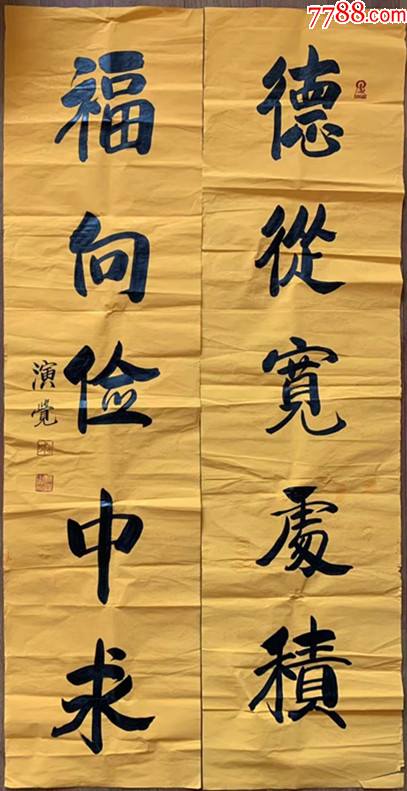 7788.com
德從寬處積
福向俭中求
演覺